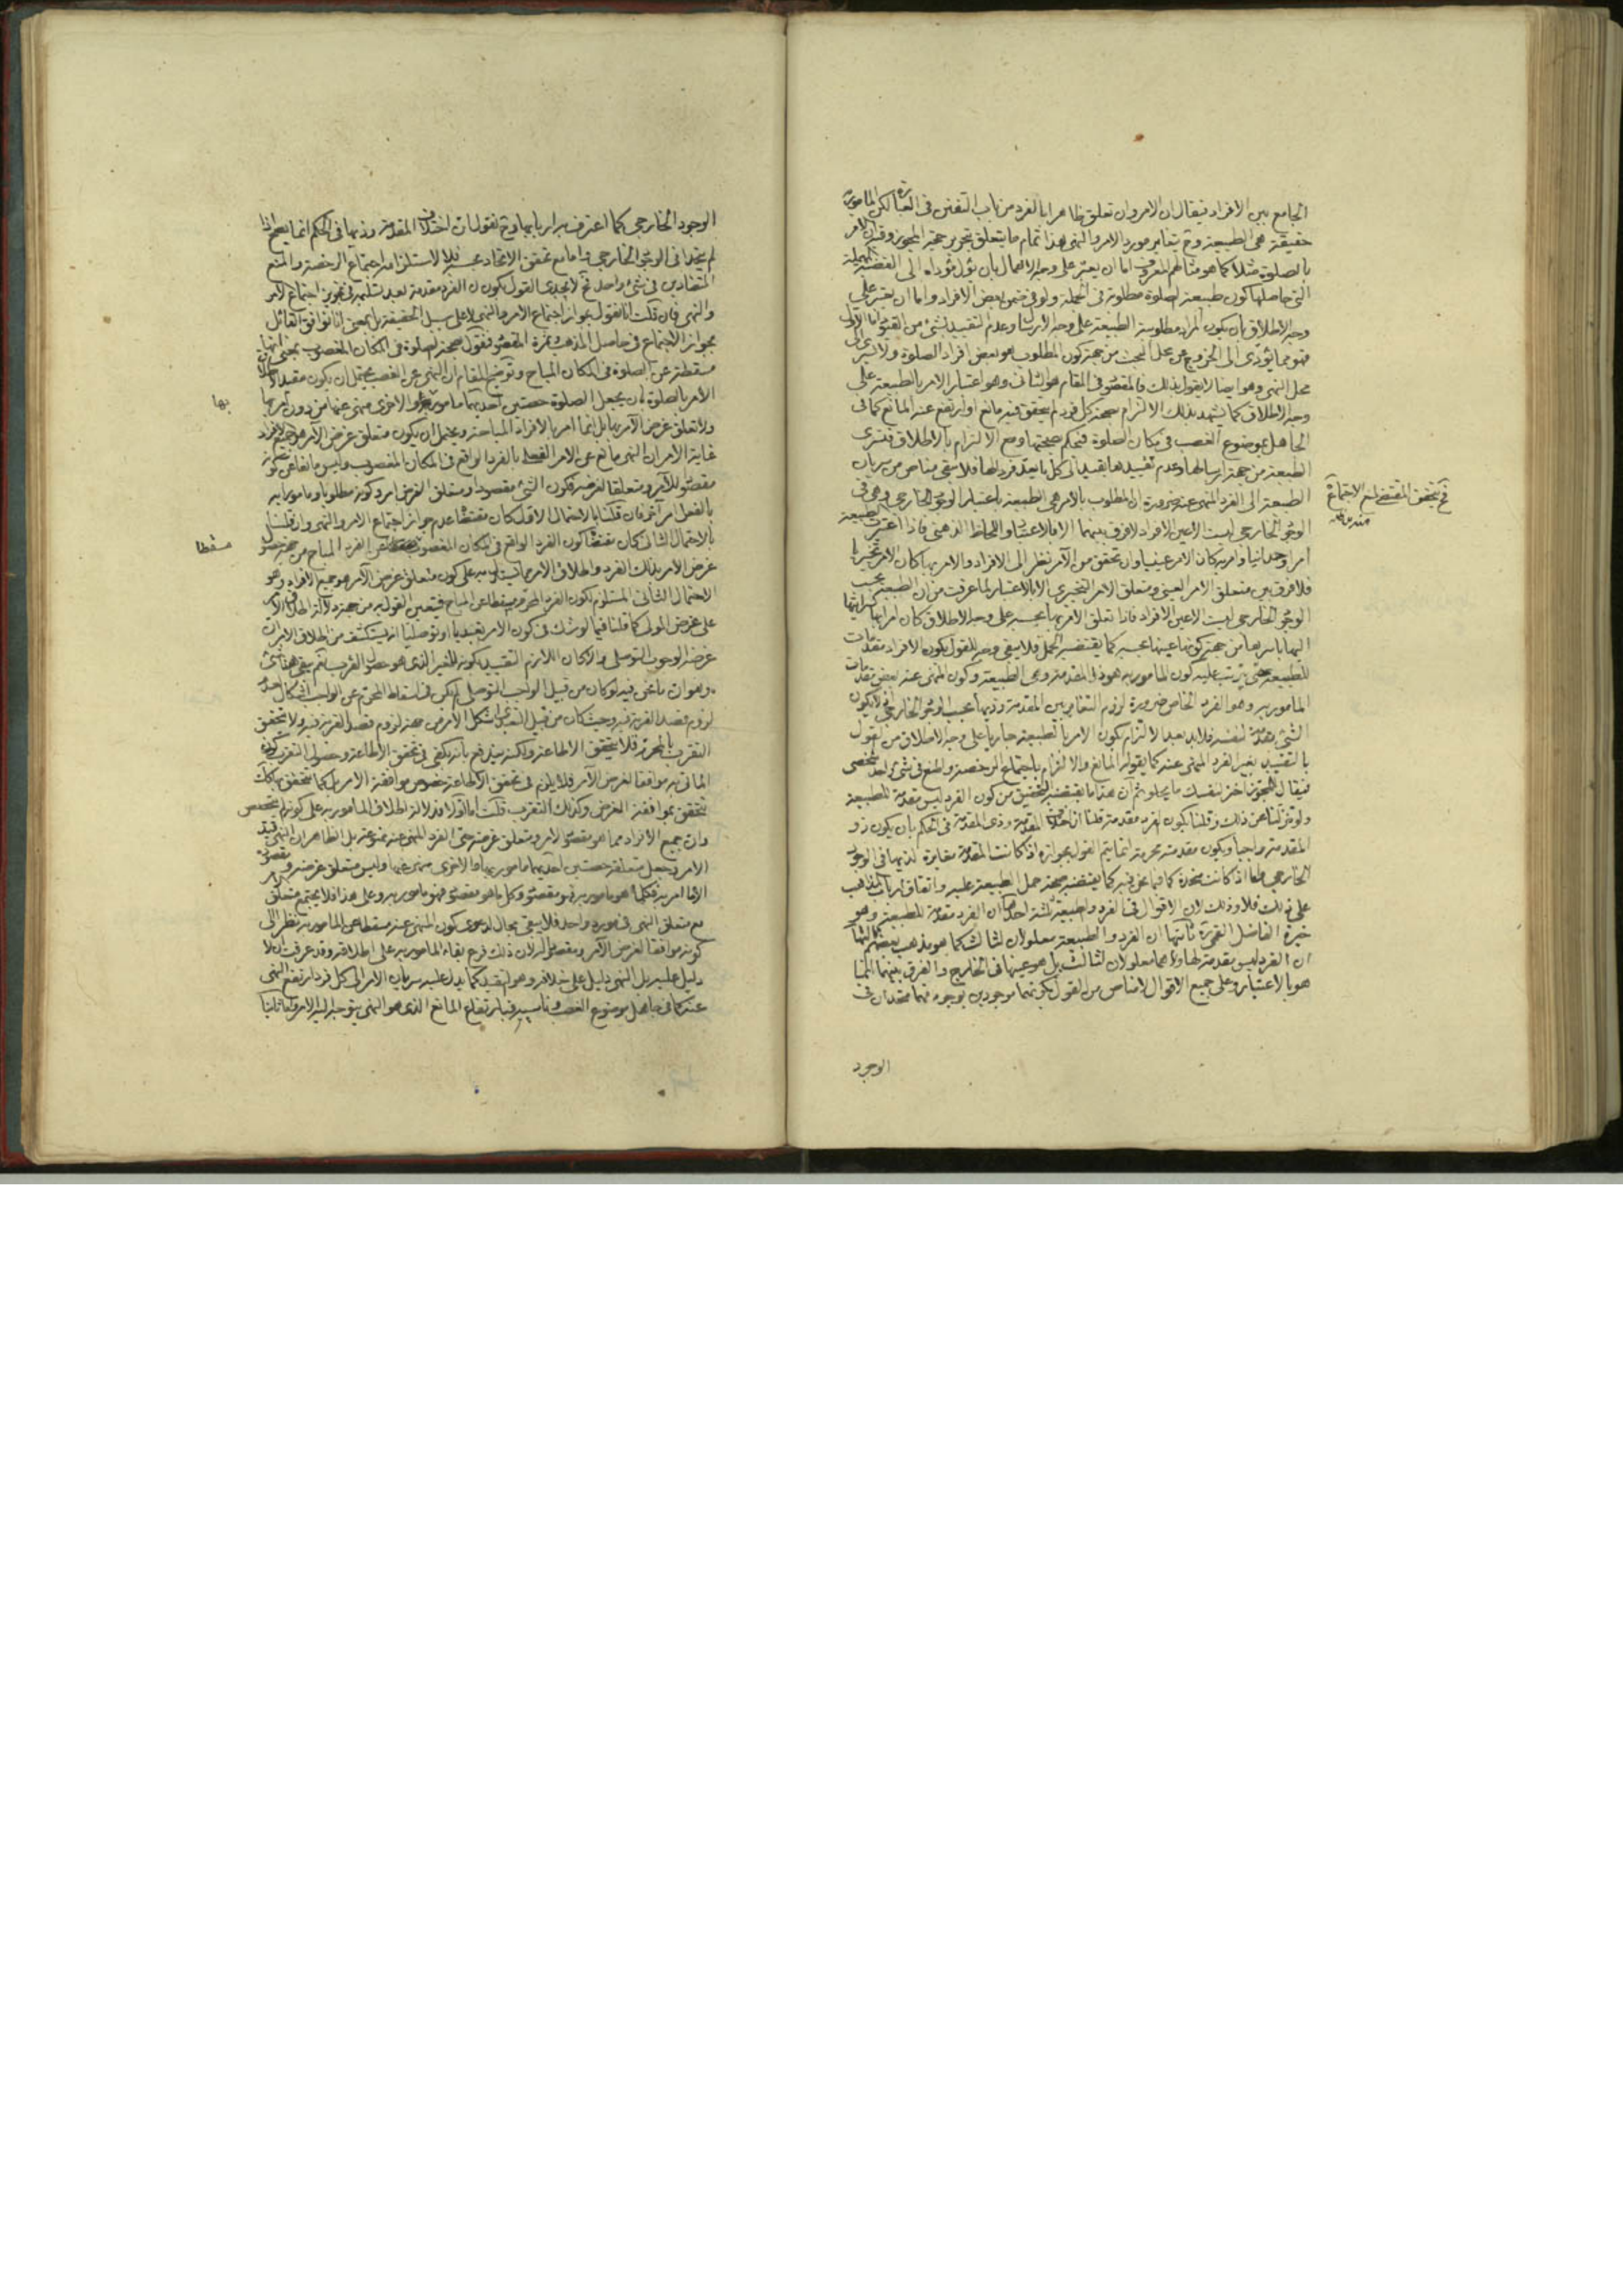 الجامع بين الافراد فيقال ان الامر وان تعلق ظاهرا بالفرد من باب التفنن فى العبارة لكن المامور به
حقيقة هى الطبيعة وح يتغاير مورد الامر والنهى هذا تمام ما يتعلق بتحرير حجة المجوز وفيه ان الامر
بالصلوة مثلا كما هو مثالهم المعروف اما ان يعتبر على وجه الاهمال بان يؤل مؤداه الى القضية المهملة
التى حاصلها كون طبيعة الصلوة مطلوبة فى الجملة ولو فى ضمن بعض الافراد واما ان يعتبر على
وجه الاطلاق بان يكون المراد مطلوبية الطبيعة على وجه الارسال وعدم التقييد بشئ من القيود اما الاول
فهو مما يؤدى الى الخروج عن محل البحث من جهة كون المطلوب هو بعض افراد الصلوة ولا يسرى الى
محل النهى وهو ايضا لا يقول بذلك فالمقصود فى المقام هو الثانى وهو اعتبار الامر بالطبيعة على
وجه الاطلاق كما يشهد بذلك الالتزام بصحة كل فرد لم يتحقق فيه مانع او ارتفع عنه المانع كما فى
الجاهل بموضوع الغصب فى مكان الصلوة فيحكم بصحتها ومع الالتزام بالاطلاق فتسرى
الطبيعة من جهة ارسالها وعدم تقييدها بقيد الى كل ما يعد فردا لها فلا يبقى مناص من سريان
الطبيعة الى الفرد المنهى عنه ضرورة ان المطلوب بالامر هى الطبيعة باعتبار الوجود الخارجى وهى فى
الوجود الخارجى ليست الا عين الافراد لا فرق بينهما الا بالاعتبار واللحاظ الذهنى فاذا اعتبرت الطبيعة
امرا وحدانيا وامر به كان الامر عينيا وان تحقق من الآمر نظر الى الافراد والامر بها كان الامر تخييريا
فلا فرق بين متعلق الامر العينى ومتعلق الامر التخييرى الا بالاعتبار لما عرفت من ان الطبيعة بحسب
الوجود الخارجى ليست الا عين الافراد فاذا تعلق الامر بها بحسبه على وجه الاطلاق كان امرا بها لسرايتها
اليها باسرها من جهة كونها عينها بحسبه كما يقتضيه الحمل فلا يبقى وجه للقول بكون الافراد مقدمات
للطبيعة حتى يترتب عليه كون المامور به هو ذا المقدمة وهى الطبيعة وكون المنهى عنه بعض مقدمات
المامور به وهو الفرد الخاص ضرورة لزوم التغاير بين المقدمة وذيها بحسب الوجود الخارجى اذ لا يكون
الشئ مقدمة لنفسه فلا بد بعد الالتزام بكون الامر بالطبيعة جاريا على وجه الاطلاق من القول
بالتقييد بغير الفرد المنهى عنه كما يقوله المانع والالتزام باجتماع الرخصة والمنع فى شئ واحد شخصى
فيقال للمجوز اختر لنفسك ما يحلو ثم ان هذا ما يقتضيه التحقيق من كون الفرد ليس مقدمة للطبيعة
ولو تنزلنا عن ذلك وقلنا بكون الفرد مقدمة قلنا ان اختلاف المقدمة وذى المقدمة فى الحكم بان يكون ذو
المقدمة واجبا ويكون مقدمته محرمة انما يتم القول بجوازه اذا كانت المقدمة مغايرة لذيها فى الوجود
الخارجى واما اذا كانت متحدة كما فيما نحن فيه كما يقتضيه صحة حمل الطبيعة عليه واتفاق ارباب المذاهب
على ذلك فلا وذلك لان الاقوال فى الفرد والطبيعة ثلثة احدها ان الفرد مقدمة للطبيعة وهو
خيرة الفاضل القمى ره ثانيها ان الفرد والطبيعة معلولان لثالث كما هو مذهب بعضهم ثالثها
ان الفرد ليس مقدمة لها ولا هما معلولان لثالث بل هو عينها فى الخارج والفرق بينهما انما
هو بالاعتبار وعلى جميع الاقوال لا مناص من القول بكونهما موجودين بوجود فهما متحدان فى
الوجود
فح يتحقق المقتضى لمنع الاجتماع
منه دام ظله
الوجود الخارجى كما اعترف به اربابها وح نقول ان اختلاف المقدمة وذيها فى الحكم انما يصح اذا
لم يتحدا فى الوجود الخارجى واما مع تحقق الاتحاد بحسبه فلا لاستلزامه اجتماع الرخصة والمنع
المتضادين فى شئ واحد فح لا يجدى القول بكون الفرد مقدمة بعد تسليمه فى تجويز اجتماع الامر
والنهى فان قلت انا نقول بجواز اجتماع الامر والنهى لا على سبيل الحقيقة بل بمعنى انا نوافق القائل
بجواز الاجتماع فى حاصل المذهب وثمرة المقصود فنقول بصحة الصلوة فى المكان المغصوب بمعنى انها
مسقطة عن الصلوة فى المكان المباح وتوضيح المقام ان النهى عن الغصب يحتمل ان يكون مقيدا لاطلاق
الامر بالصلوة بان يجعل الصلوة حصتين احديهما مامور بها والاخرى منهى عنها من دون امر بها
ولا تعلق غرض الآمر بها بل انما امر بالافراد المباحة ويحتمل ان يكون متعلق غرض الآمر هو جميع الافراد
غاية الامر ان النهى مانع عن الامر الفعلى بالفرد الواقع فى المكان المغصوب وليس مانعا عن كونه
مقصودا للآمر ومتعلقا لغرضه فكون الشئ مقصودا ومتعلق الغرض امر وكونه مطلوبا ومامورا به
بالفعل امر آخر فان قلنا بالاحتمال الاول كان مقتضاه عدم جواز اجتماع الامر والنهى وان قلنا
بالاحتمال الثانى كان مقتضاه كون الفرد الواقع فى المكان المغصوب مسقطا عن الفرد المباح من جهة حصول
غرض الامر بذلك الفرد واطلاق الامر
الاحتمال الثانى المستلزم لكون الفرد المحرم مسقطا عن المباح فيتعين القول به من جهة دلالة اطلاق الامر
على غرض المولى كما قلنا فيما لو شك فى كون الامر تعبديا او توصليا انه يستكشف من اطلاق الامر ان
غرضه الوجوب التوصلى والا لكان اللازم التقييد بكونه للغير الذى هو حصول القرب نعم يبقى هنا شئ
وهو ان ما نحن فيه لو كان من قبيل الواجب التوصلى لم يكن فى اسقاط المحرم عن الواجب اشكال لعدم
لزوم قصد القربة فيه وحيث كان من قبيل التعبدى اشكل الامر من جهة لزوم قصد القربة فيه ولا يتحقق
التقرب بالمحرم فلا يتحقق الاطاعة ولكنه يندفع بانه يكفى فى تحقق الاطاعة وحصول التقرب كون
الماتى به موافقا لغرض الآمر فلا يلزم فى تحقق الاطاعة خصوص موافقة الامر بل كما تتحقق بذلك
تتحقق بموافقة الغرض وكذلك التقرب قلت اما اولا فدلالة اطلاق المامور به على كونه لم يتخصص
وان جميع الافراد مما هو مقصود للآمر ومتعلق غرضه حتى الفرد المنهى عنه ممنوعة بل الظاهر ان النهى قيد
الامر وجعل متعلقه حصتين احديهما مامور بها والاخرى منهى عنها وليس متعلق غرضه ومقصوده
الا ما امر به فكلما هو مامور به فهو مقصود وكل ما هو مقصود فهو مامور به وعلى هذا فلا يجتمع متعلق الامر
مع متعلق النهى فى مورد واحد فلا يبقى مجال لدعوى كون المنهى عنه مسقطا عن المامور به نظرا الى
كونه موافقا لغرض الآمر ومقصودا له لان ذلك فرع بقاء المامور به على اطلاقه وقد عرفت ان لا
دليل عليه بل النهى دليل على خلافه وهو التقييد كما يدل عليه سريان الامر الى كل فرد ارتفع النهى
عنه كما فى جاهل موضوع الغصب وناسيه فبارتفاع المانع الذى هو النهى يتوجه اليه الامر واما ثانيا
بها
مسقطا